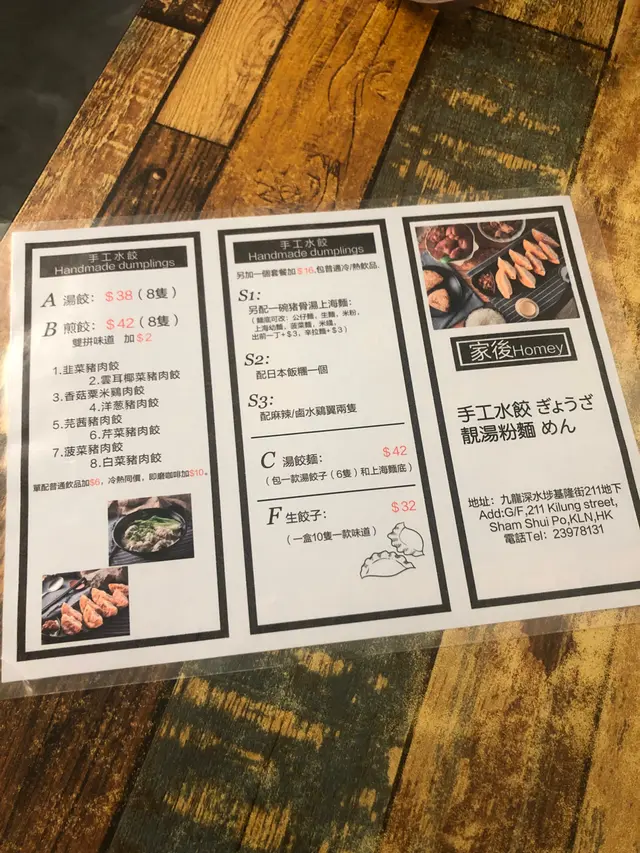 手工水餃
Handmade dumplings
A 湯餃：$38（8隻）
B 煎餃：$42（8隻）
雙拼味道 加$2
1.韭菜豬肉餃
2.雲耳椰菜豬肉餃
3.香菇粟米鷄肉餃
4.洋葱豬肉餃
5.芫茜豬肉餃
6.芹菜豬肉餃
7.菠菜豬肉餃
8.白菜豬肉餃
單配普通飲品加$6，冷熱同價，即磨咖啡加$10。
手工水餃
Handmade dumplings
另加一個套餐加$16,包普通冷/熱飲品.
S1:
另配一碗猪骨湯上海麵：
（麵底可改：公仔麵，生麵，米粉，
上海幼麵，菠菜麵，米線，
出前一丁+$3，辛拉麵+$3）
S2:
配日本飯糰一個
S3:
配麻辣/鹵水鷄翼兩隻
C 湯餃麵： $42
（包一款湯餃子（6隻）和上海麵底）
F 生餃子： $32
（一盒10隻一款味道）
家後Homey
手工水餃 ぎょうざ
靚湯粉麵 めん
地址：九龍深水埗基隆街211地下
Add:G/F,211 Kilung street,
Sham Shui Po,KLN,HK
電話Tel：23978131